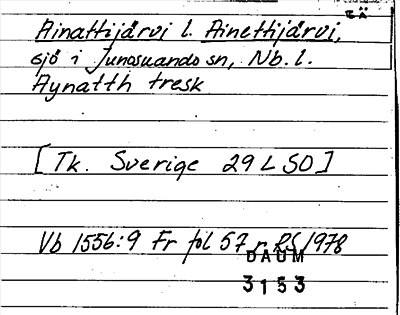 EÄ
Ainattijärvi l. Ainettijärvi,
sjö i Junosuando sn, Nb. l.
Aynatth tresk
[Tk. Sverige 29 L SO]
Vb 1556:9 Fr fol 57 r. RS 1978
DAUM
3153